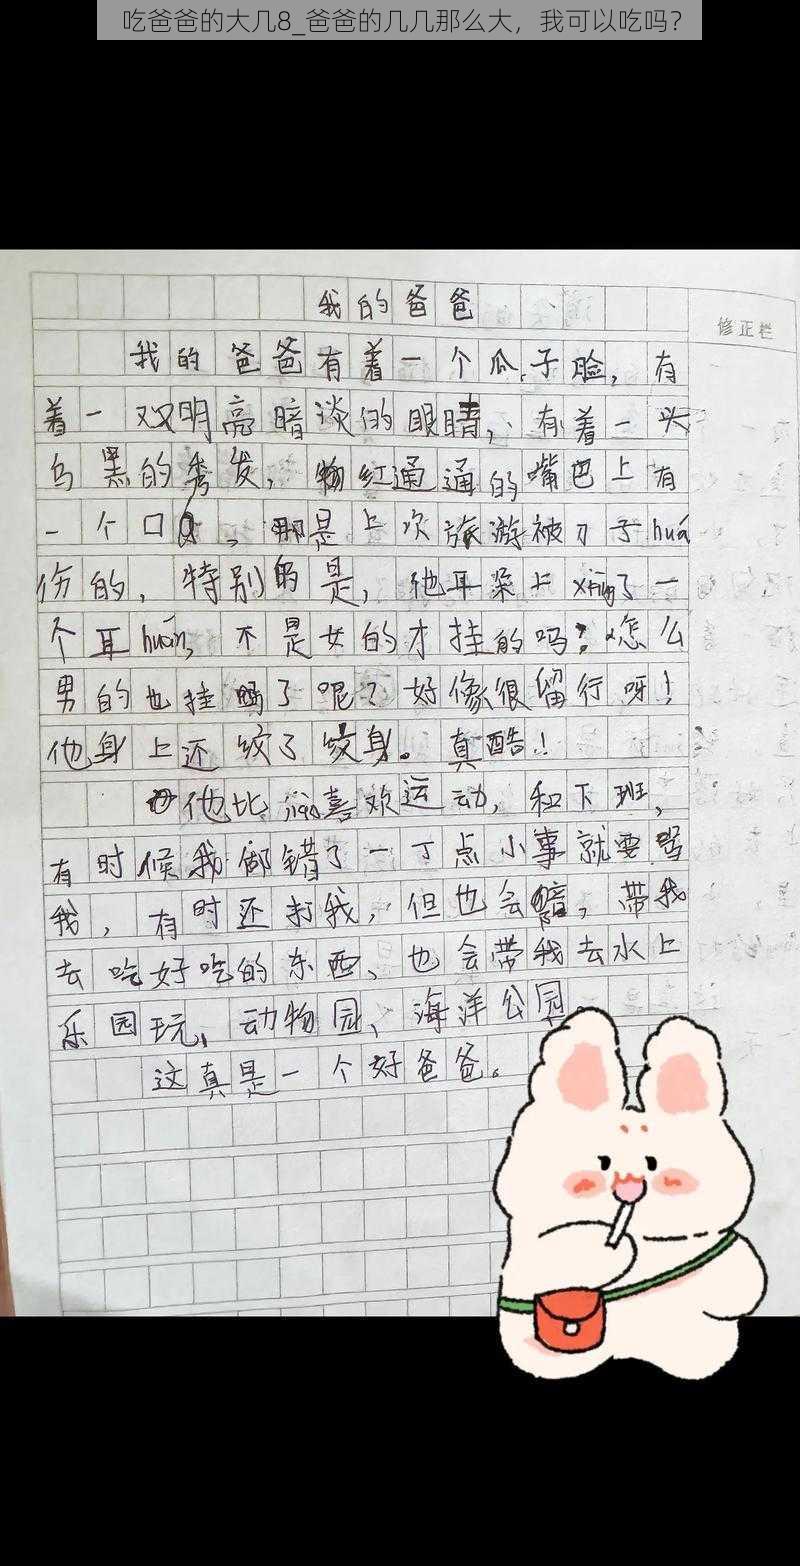 吃爸爸的大几8_爸爸的几几那么大，我可以吃吗？
我的爸爸
修正栏
我的爸爸有着一个瓜子脸，有
着一双明亮暗淡的眼睛，有着一头
乌黑的秀发，红通通的嘴巴上有
一个口，那是上次旅游被刀子huá
伤的，特别的是，他耳朵上了一
个耳huán，不是女的才挂的吗？怎么
男的也挂了呢？好像很留行呀！
他身上还纹了纹身。真酷！
他比jiào喜欢运动，和下班，
有时候我做错了一丁点小事就要骂
我，有时还打我，但也会，带我
去吃好吃的东西、也会带我去水上
乐园玩，动物园、海洋公园
这真是一个好爸爸。